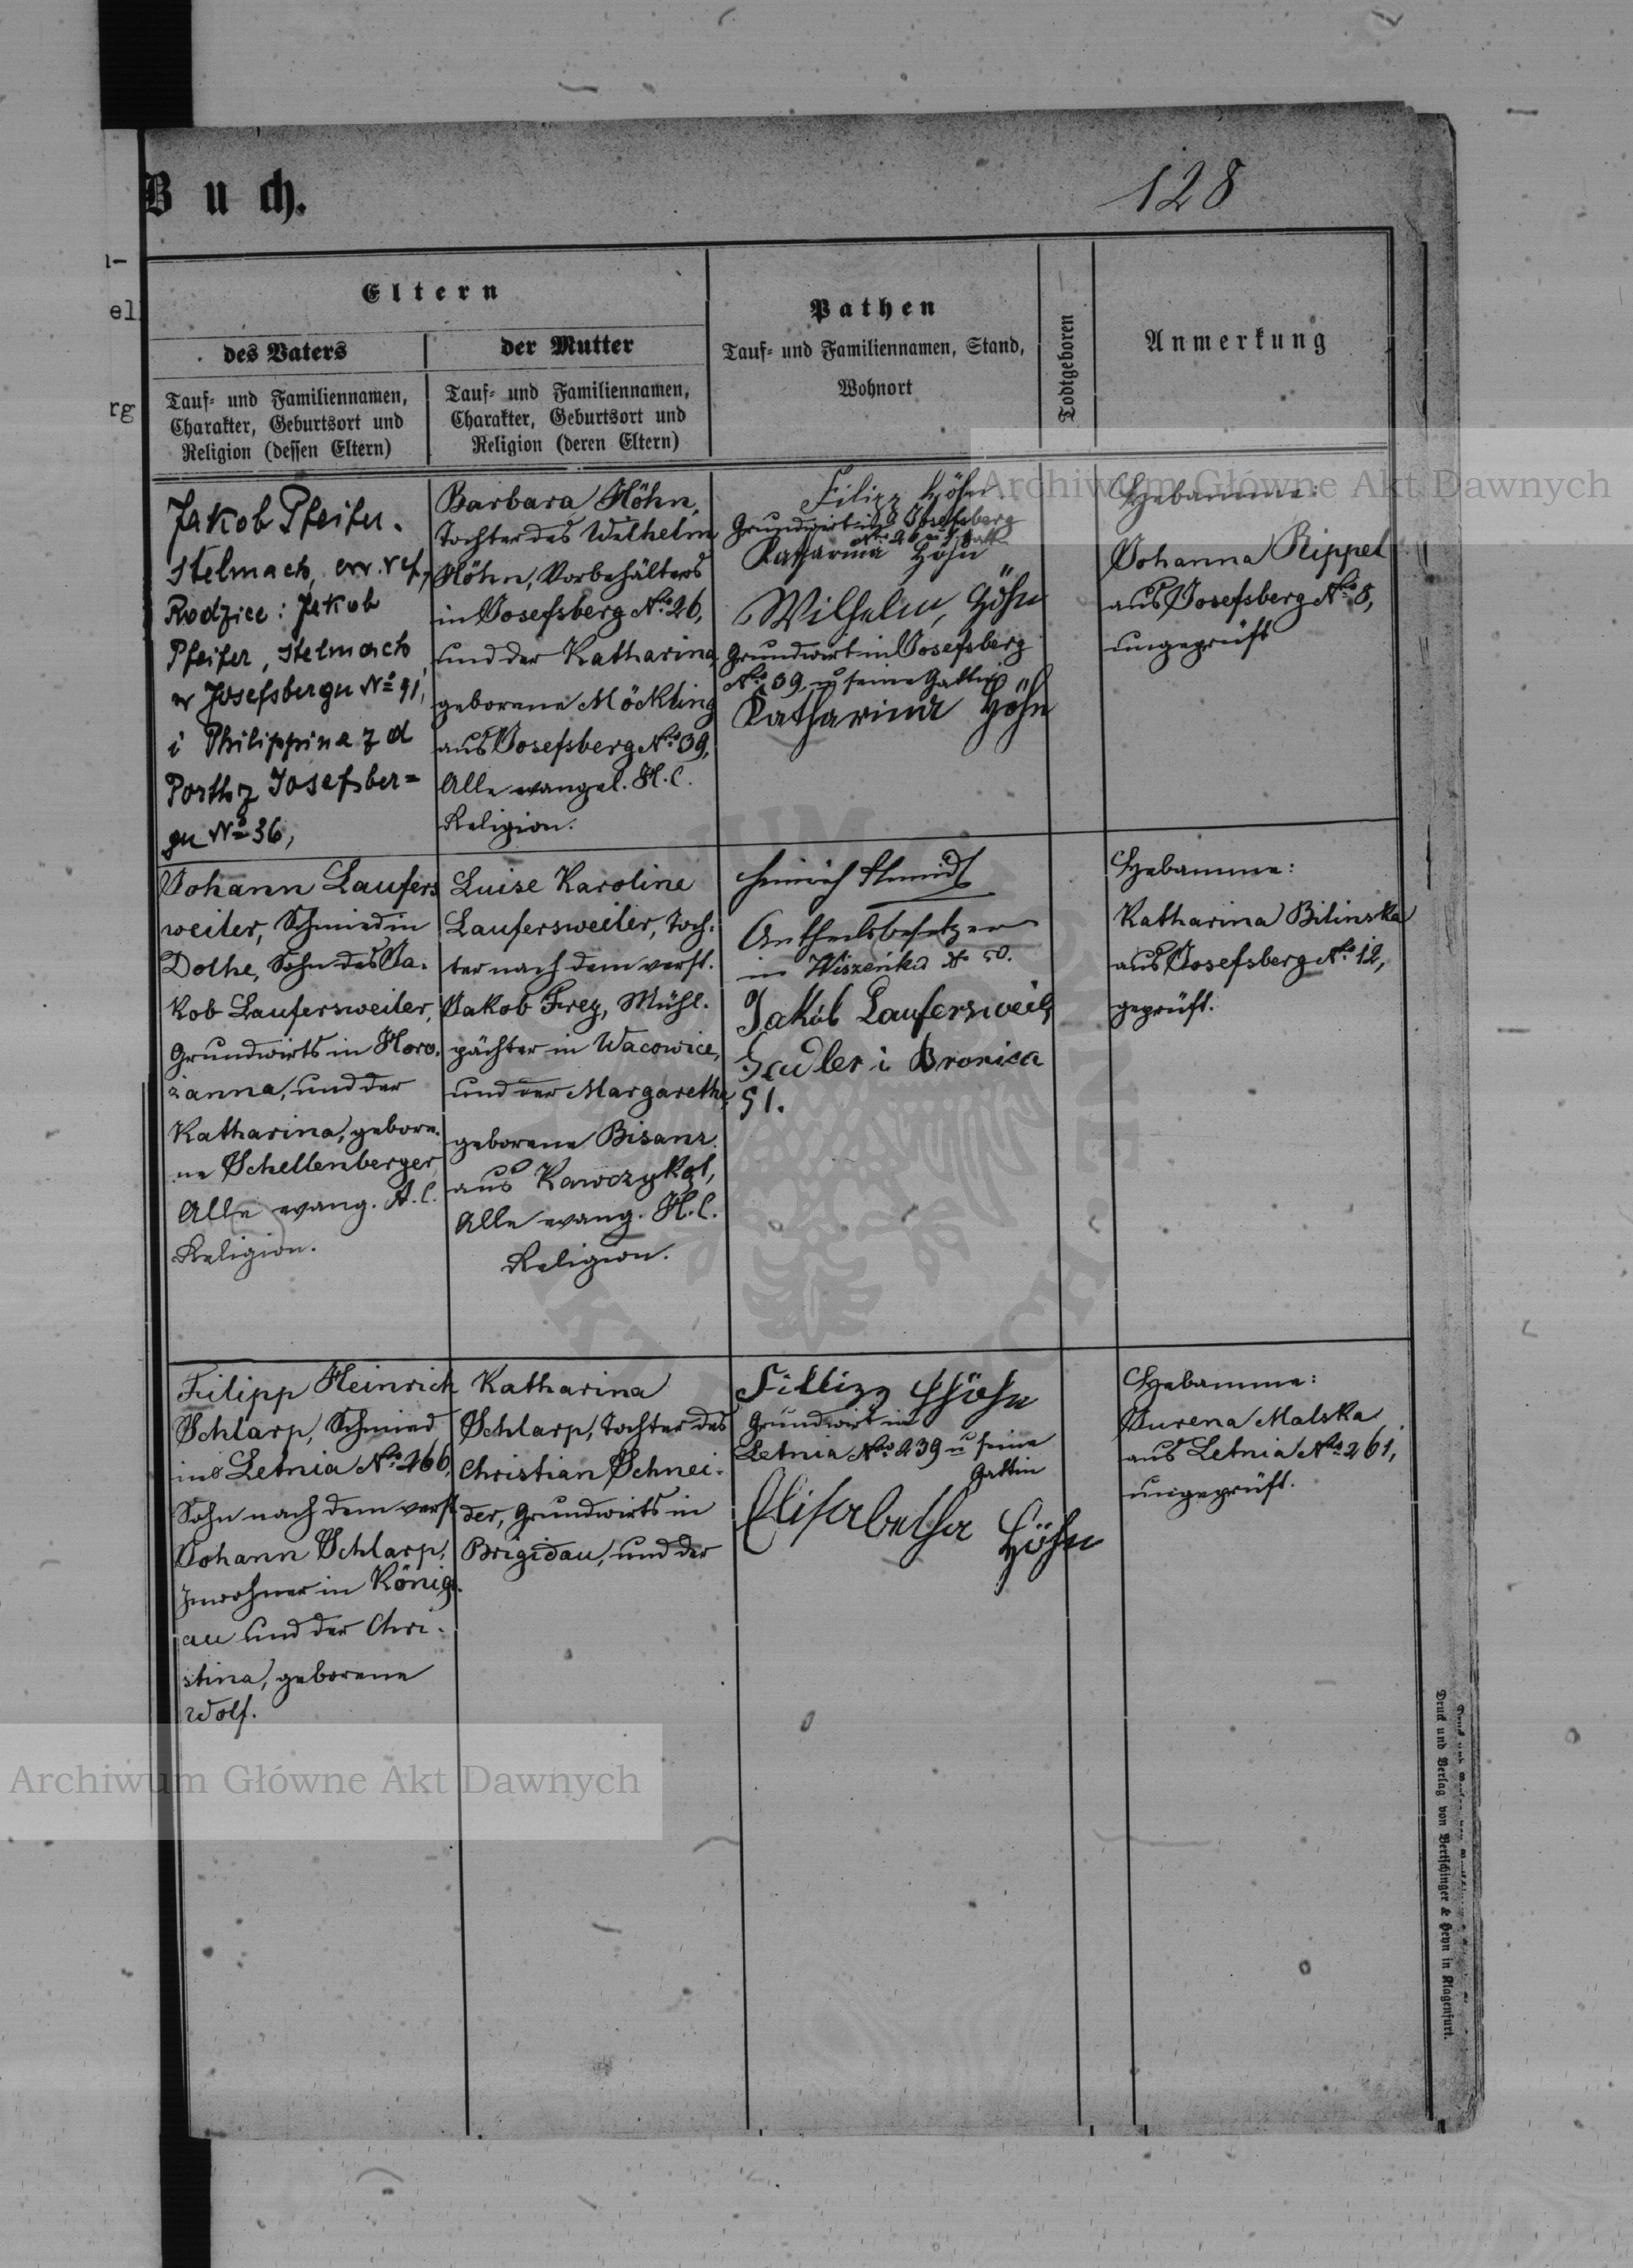 Buch.
128
Eltern
des Vaters
Tauf- und Familiennamen,
Charakter, Geburtsort und
Religion (dessen Eltern)
der Mutter
Tauf- und Familiennamen,
Charakter, Geburtsort und
Religion (deren Eltern)
Pathen
Tauf- und Familiennamen, Stand,
Wohnort
Todtgeboren
Anmerkung
Jakob Pfeifer.
Stelmach, ew. ref,
Rodzice: Jakob
Pfeifer, Stelmach
w Josefsbergu No 91,
i Philippina z d
Porth z Josefsber=
gu No 36,
Barbara Höhn,
Tochter des Wilhelm
Höhn, Vorbehälters
in Josefsberg No. 26,
und der Katharina
geborene Möckling
aus Josefsberg No. 39,
Alle evangel. H.C.
Religion.
Filipp Höhn
Grundwirt in Josefsberg
Katharina Höhn
Wilhelm Höhn
Grundwirt in Josefsberg
No. 39 u seine Gattin
Katharina Höhn
Hebamme:
Johanna Rippel
aus Josefsberg No. 8,
ungeprüft
Johann Laufers
weiler, Schmied in
Dolhe, Sohn des Ja.
kob Laufersweiler,
Grundwirts in Horo.
żanna, und der
Katharina, gebore.
ne Schellenberger
Alle evang. A.C.
Religion.
Luise Karoline
Laufersweiler, Toch.
ter nach dem verst.
Jakob Frey, Mühl.
pächter in Wacowice,
und der Margarethe
geborene Bisanz
aus Kawczykąt,
Alle evang. H.C.
Religion.
Heinrich Schmidt
Antheilsbesitzer
in Wiszenka No 50.
Jakob Laufersweil
Sadler i Bronica
51.
Hebamme:
Katharina Bilinska
aus Josefsberg No. 12,
geprüft.
Filipp Heinrich
Schlarp, Schmied
in Letnia No. 266,
Sohn nach dem verst.
Johann Schlarp,
Inwohner in Königs.
au und der Chri.
stina, geborene
Wolf.
Katharina
Schlarp, Tochter des
Christian Schnei.
der, Grundwirts in
Brigidau, und der
Fillipp Höhn
Grundwirt in
Letnia No. 239 u seine
Gattin
Elisabetha Höhn
Hebamme:
Jurena Malska
aus Letnia No. 261,
ungeprüft.
Druck und Verlag von Bertschinger & Heyn in Klagenfurt.
Archiwum Główne Akt Dawnych
Archiwum Główne Akt Dawnych